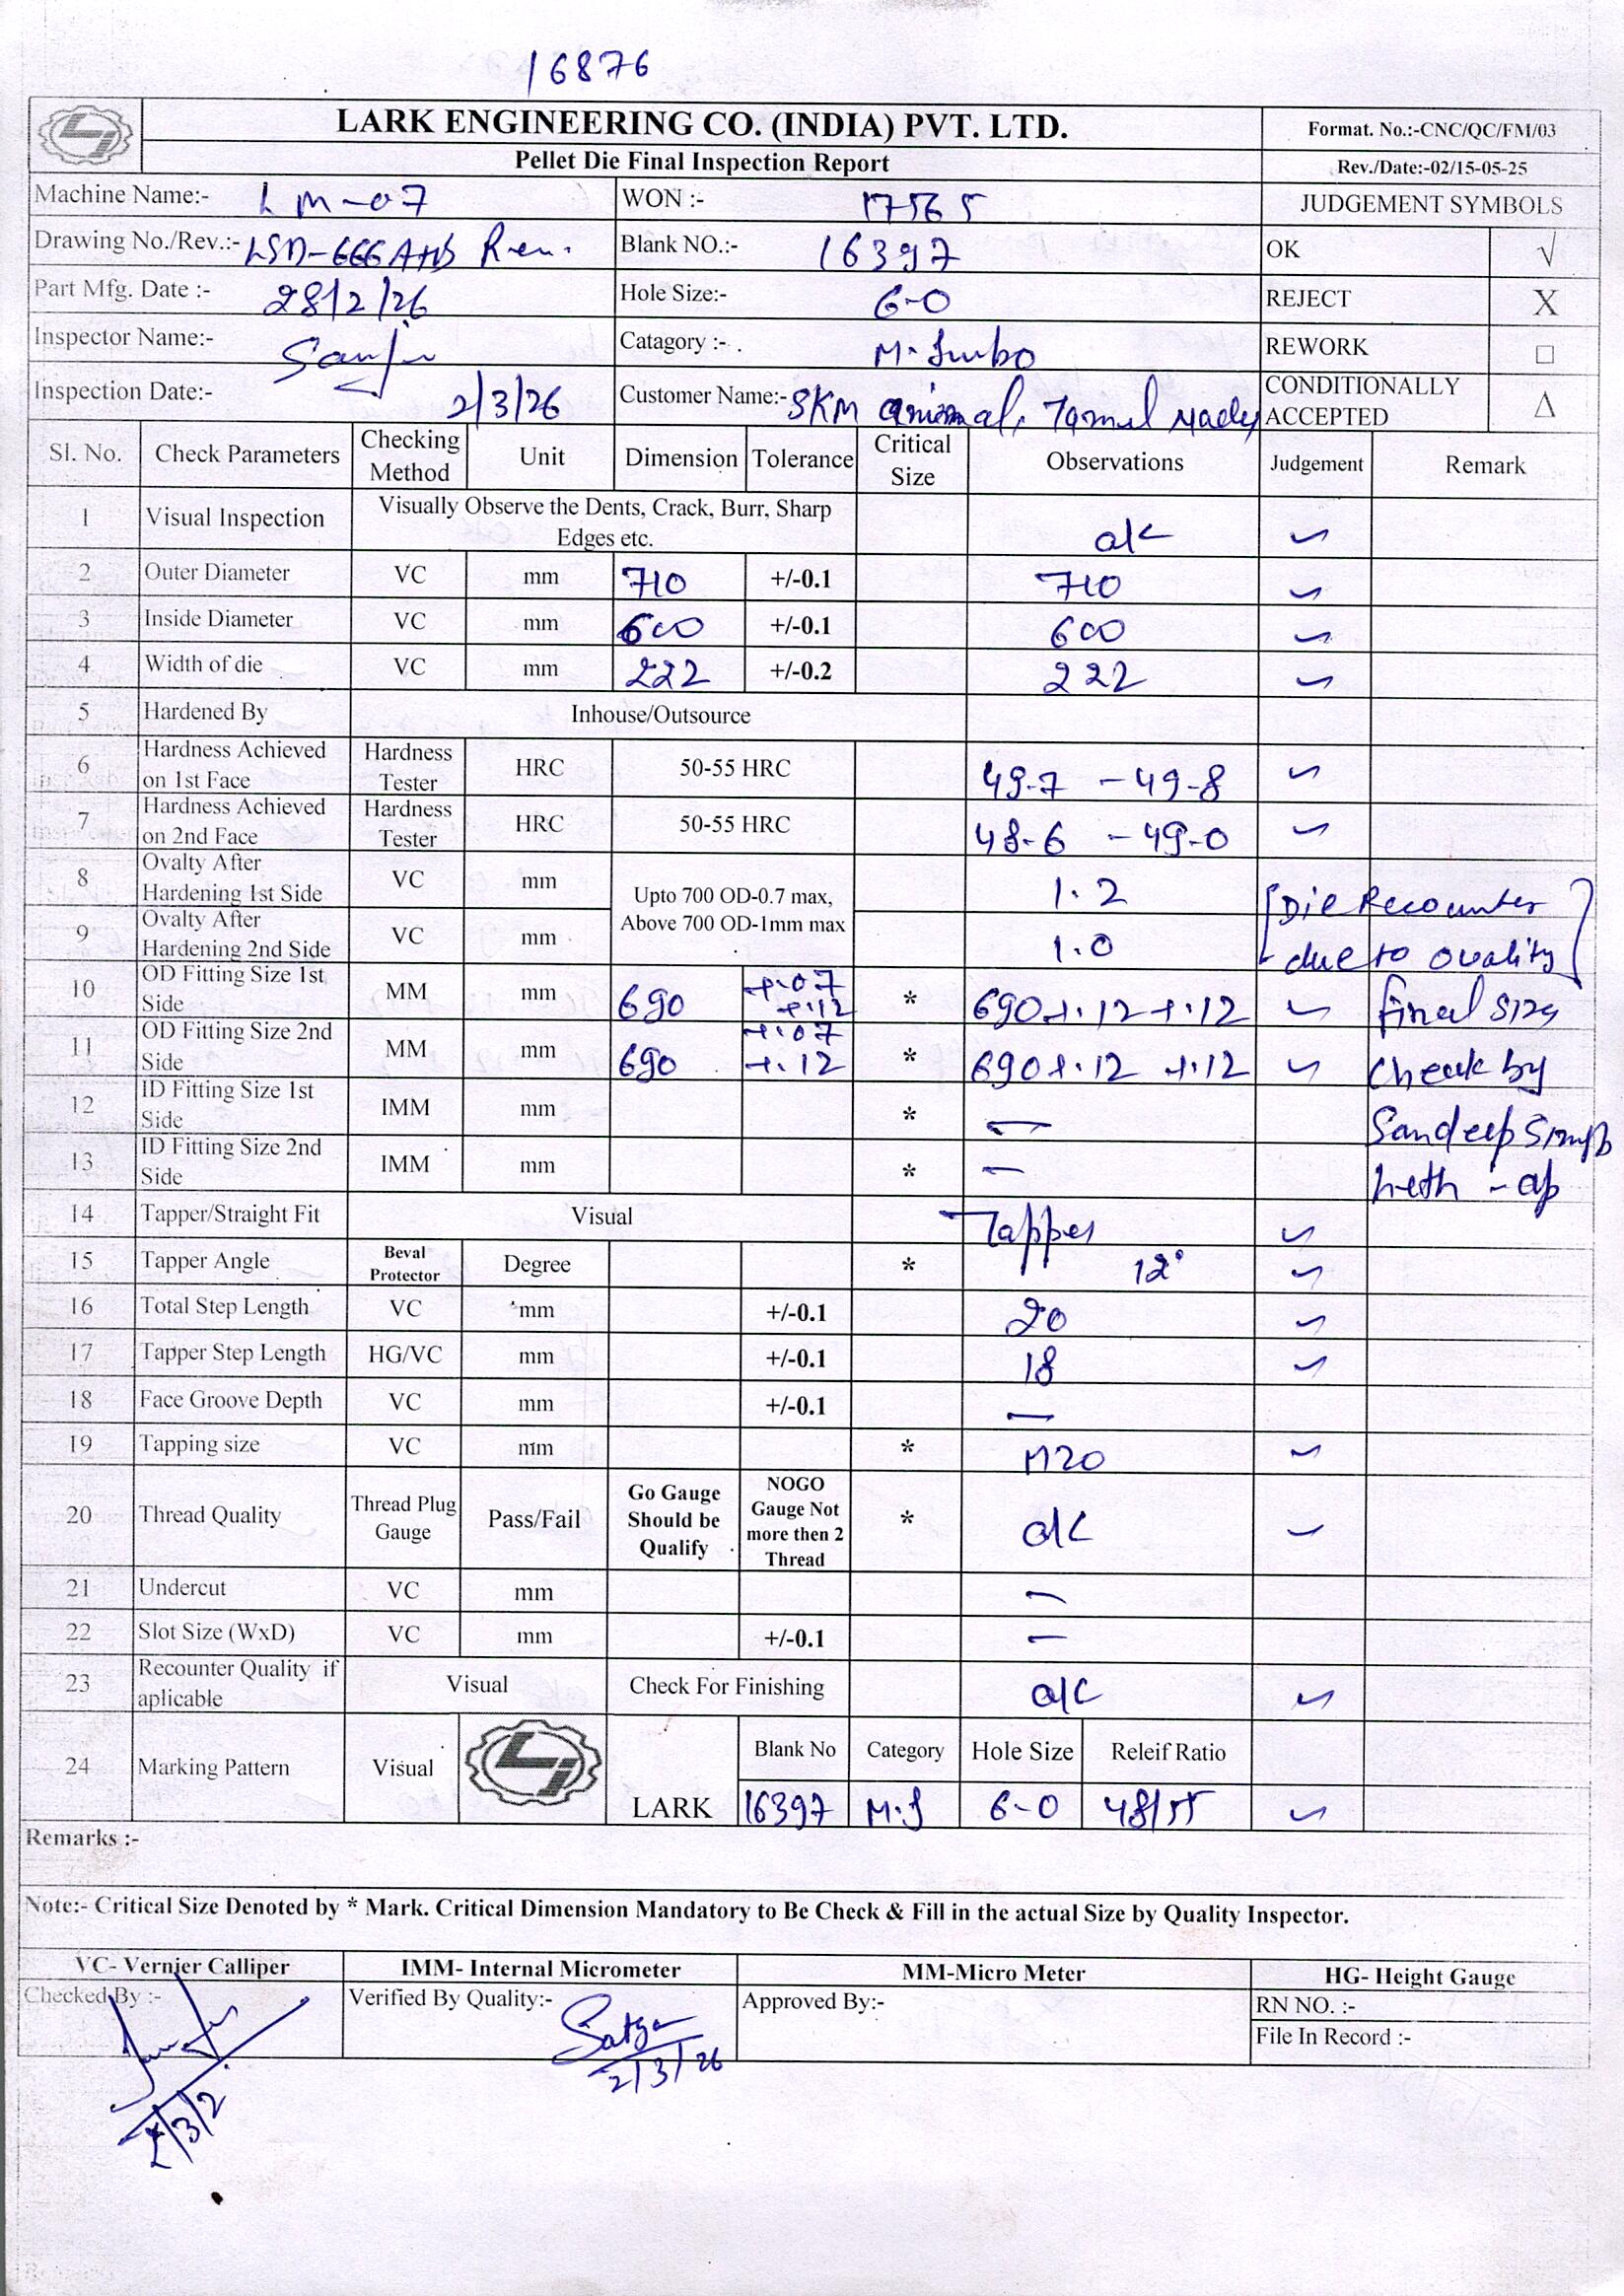 16876
LARK ENGINEERING CO. (INDIA) PVT. LTD.
Format. No.:-CNC/QC/FM/03
Pellet Die Final Inspection Report
Rev./Date:-02/15-05-25
Machine Name:- LM-07 WON :- 17565 JUDGEMENT SYMBOLS
Drawing No./Rev.:- Blank NO.:- 16397 OK √
Part Mfg. Date :- 28/2/26 Hole Size:- 6-0 REJECT X
Inspector Name:- Catagory :- . REWORK □
Inspection Date:- 2/3/26 Customer Name:- SKM animal, CONDITIONALLY ACCEPTED Δ
Sl. No. Check Parameters Checking Method Unit Dimension Tolerance Critical Size Observations Judgement Remark
1 Visual Inspection Visually Observe the Dents, Crack, Burr, Sharp Edges etc. o/k ✓
2 Outer Diameter VC mm 710 +/-0.1 710 ✓
3 Inside Diameter VC mm 600 +/-0.1 600 ✓
4 Width of die VC mm 222 +/-0.2 222 ✓
5 Hardened By Inhouse/Outsource
6 Hardness Achieved on 1st Face Hardness Tester HRC 50-55 HRC 49-7 - 49-8 ✓
7 Hardness Achieved on 2nd Face Hardness Tester HRC 50-55 HRC 48-6 - 49-0 ✓
8 Ovalty After Hardening 1st Side VC mm Upto 700 OD-0.7 max, Above 700 OD-1mm max 1.2 [Die Recounter
9 Ovalty After Hardening 2nd Side VC mm 1.0 due to ovality]
10 OD Fitting Size 1st Side MM mm 690 +.07 +.12 * 690+.12 +.12 ✓ final size
11 OD Fitting Size 2nd Side MM mm 690 +.07 +.12 * 690+.12 +.12 ✓ Check by
12 ID Fitting Size 1st Side IMM mm * — Sandeep
13 ID Fitting Size 2nd Side IMM mm * —
14 Tapper/Straight Fit Visual Tapper ✓
15 Tapper Angle Beval Protector Degree * 12° ✓
16 Total Step Length VC mm +/-0.1 20 ✓
17 Tapper Step Length HG/VC mm +/-0.1 18 ✓
18 Face Groove Depth VC mm +/-0.1 —
19 Tapping size VC mm * M20 ✓
20 Thread Quality Thread Plug Gauge Pass/Fail Go Gauge Should be Qualify NOGO Gauge Not more then 2 Thread * o/k ✓
21 Undercut VC mm —
22 Slot Size (WxD) VC mm +/-0.1 —
23 Recounter Quality if aplicable Visual Check For Finishing o/k ✓
24 Marking Pattern Visual LARK Blank No Category Hole Size Releif Ratio
16397 M.J 6-0 48/55 ✓
Remarks :-
Note:- Critical Size Denoted by * Mark. Critical Dimension Mandatory to Be Check & Fill in the actual Size by Quality Inspector.
VC- Vernier Calliper IMM- Internal Micrometer MM-Micro Meter HG- Height Gauge
Checked By :- Verified By Quality:- Satya Approved By:- RN NO. :-
2/3/26 File In Record :-